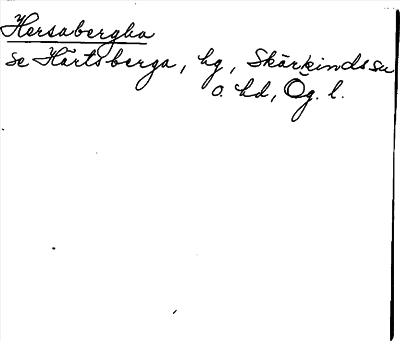 Hersabergha
se Härtsberga, hg, Skärkinds sn
o. hd, Ög. l.